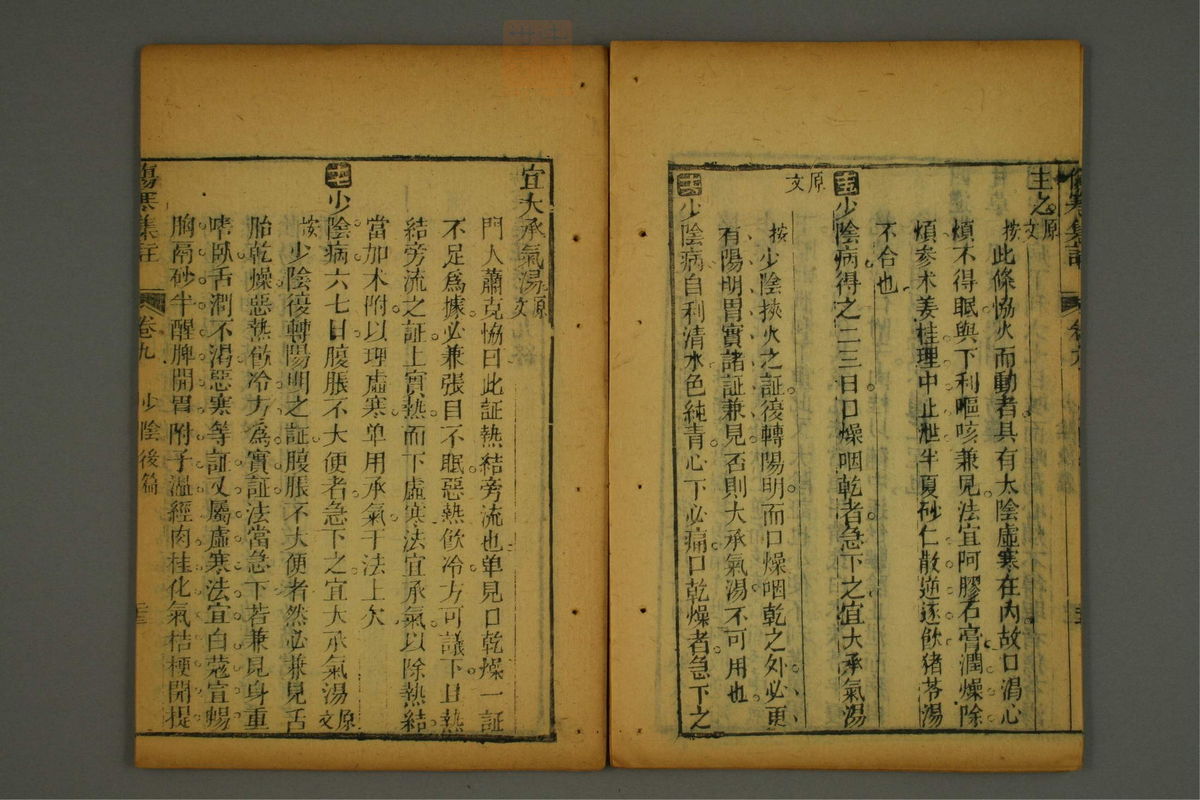 主之原文
按此條協火而動者具有太陰虛寒在內故口渴心
煩不得眠與下利嘔咳兼見法宜阿膠石膏潤燥除
煩參术姜桂理中止泄半夏砂仁散逆逐飲猪苓湯
不合也
少陰病得之二三日口燥咽乾者急下之宜大承氣湯
原文
按少陰挾火之証復轉陽明而口燥咽乾之外必更
有陽明胃實諸証兼見否則大承氣湯不可用也
少陰病自利清水色純青心下必痛口乾燥者急下之
宜大承氣湯原文
門人蕭克協曰此証熱結旁流也単見口乾燥一証
不足為據必兼張目不眠惡熱飲冷方可議下且熱
結旁流之証上實熱而下虛寒法宜承氣以除熱結
當加术附以理虛寒単用承氣于法上欠
少陰病六七日腹脹不大便者急下之宜大承氣湯原文
按少陰復轉陽明之証腹脹不大便者然必兼見舌
胎乾燥惡熱飲冷方為實証法當急下若兼見身重
嗜卧舌潤不渴惡寒等証又屬虛寒法宜白蔻宣暢
胸膈砂半醒脾開胃附子溫經肉桂化氣桔梗開提
傷寒集註 卷九 少陰後篇